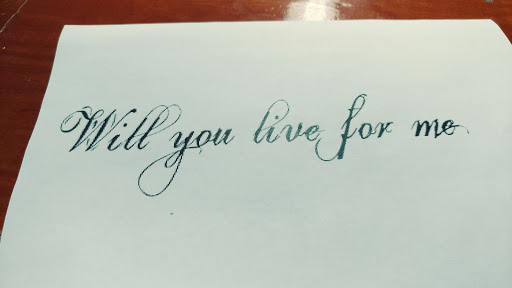 Will you live for me